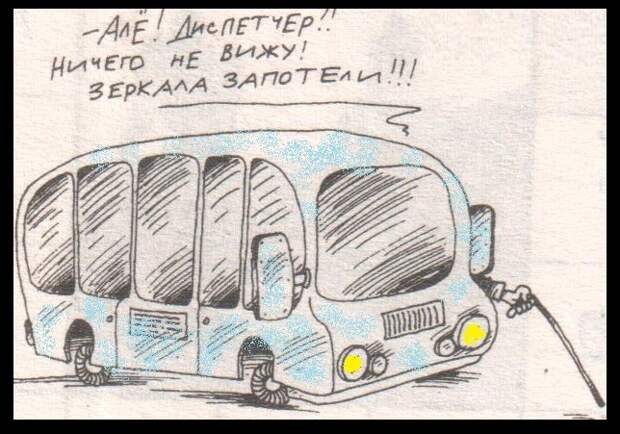 -Алё! Диспетчер!!
Ничего не вижу!
Зеркала запотели!!!